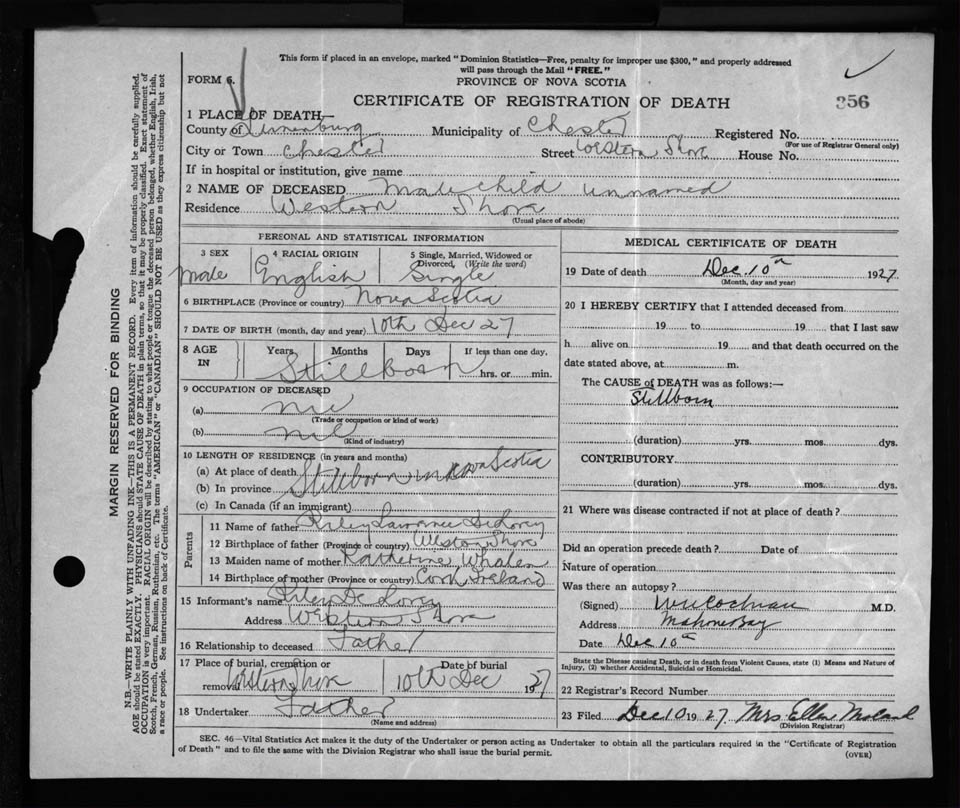 This form if placed in an envelope, marked "Dominion Statistics—Free, penalty for improper use $300," and properly addressed
will pass through the Mail "FREE."
FORM 6.
PROVINCE OF NOVA SCOTIA
CERTIFICATE OF REGISTRATION OF DEATH
356
1 PLACE OF DEATH—
County of Lunenburg Municipality of Chester Registered No.
(For use of Registrar General only)
City or Town Chester Street Western Shore House No.
If in hospital or institution, give name
2 NAME OF DECEASED Male child unnamed
Residence Western Shore
(Usual place of abode)
PERSONAL AND STATISTICAL INFORMATION
3 SEX
Male
4 RACIAL ORIGIN
English
5 Single, Married, Widowed or
Divorced, (Write the word)
Single
6 BIRTHPLACE (Province or country) Nova Scotia
7 DATE OF BIRTH (month, day and year) 10th Dec 27
8 AGE
IN
Years Months Days If less than one day,
Stillborn hrs. or min.
9 OCCUPATION OF DECEASED
(a) nil
(Trade or occupation or kind of work)
(b) nil
(Kind of industry)
10 LENGTH OF RESIDENCE (in years and months)
(a) At place of death
(b) In province Stillborn in Nova Scotia
(c) In Canada (if an immigrant)
Parents
11 Name of father Riley Lawrence DeLorey
12 Birthplace of father (Province or country) Western Shore
13 Maiden name of mother Katherine Whalen
14 Birthplace of mother (Province or country) Cork Ireland
15 Informant's name Riley De Lorey
Address Western Shore
16 Relationship to deceased Father
17 Place of burial, cremation or
removal Western Shore
Date of burial
10th Dec 1927
18 Undertaker Father
(Name and address)
MEDICAL CERTIFICATE OF DEATH
19 Date of death Dec. 10th 1927.
(Month, day and year)
20 I HEREBY CERTIFY that I attended deceased from
19 to 19 that I last saw
h alive on 19 and that death occurred on the
date stated above, at m.
The CAUSE of DEATH was as follows:—
Stillborn
(duration) yrs. mos. dys.
CONTRIBUTORY
(duration) yrs. mos. dys.
21 Where was disease contracted if not at place of death?
Did an operation precede death? Date of
Nature of operation
Was there an autopsy?
(Signed) Cochran M.D.
Address Mahone Bay
Date Dec 10th
State the Disease causing Death, or in death from Violent Causes, state (1) Means and Nature of
Injury, (2) whether Accidental, Suicidal or Homicidal.
22 Registrar's Record Number
23 Filed Dec 10 1927. Mrs Ellen
(Division Registrar)
SEC. 46—Vital Statistics Act makes it the duty of the Undertaker or person acting as Undertaker to obtain all the particulars required in the "Certificate of Registration
of Death" and to file the same with the Division Registrar who shall issue the burial permit.
(OVER)
MARGIN RESERVED FOR BINDING
N.B.—WRITE PLAINLY WITH UNFADING INK—THIS IS A PERMANENT RECORD. Every item of information should be carefully supplied.
AGE should be stated EXACTLY. PHYSICIANS should STATE CAUSE OF DEATH in plain terms, so that it may be properly classified. Exact statement of
OCCUPATION is very important. RACIAL ORIGIN will be described by stating to what people or tongue the deceased person belonged, whether English, Irish,
Scotch, French, German, Russian, Ruthenian, etc. The terms "AMERICAN" or "CANADIAN" SHOULD NOT BE USED as they express citizenship but not
a race or people. See instructions on back of Certificate.